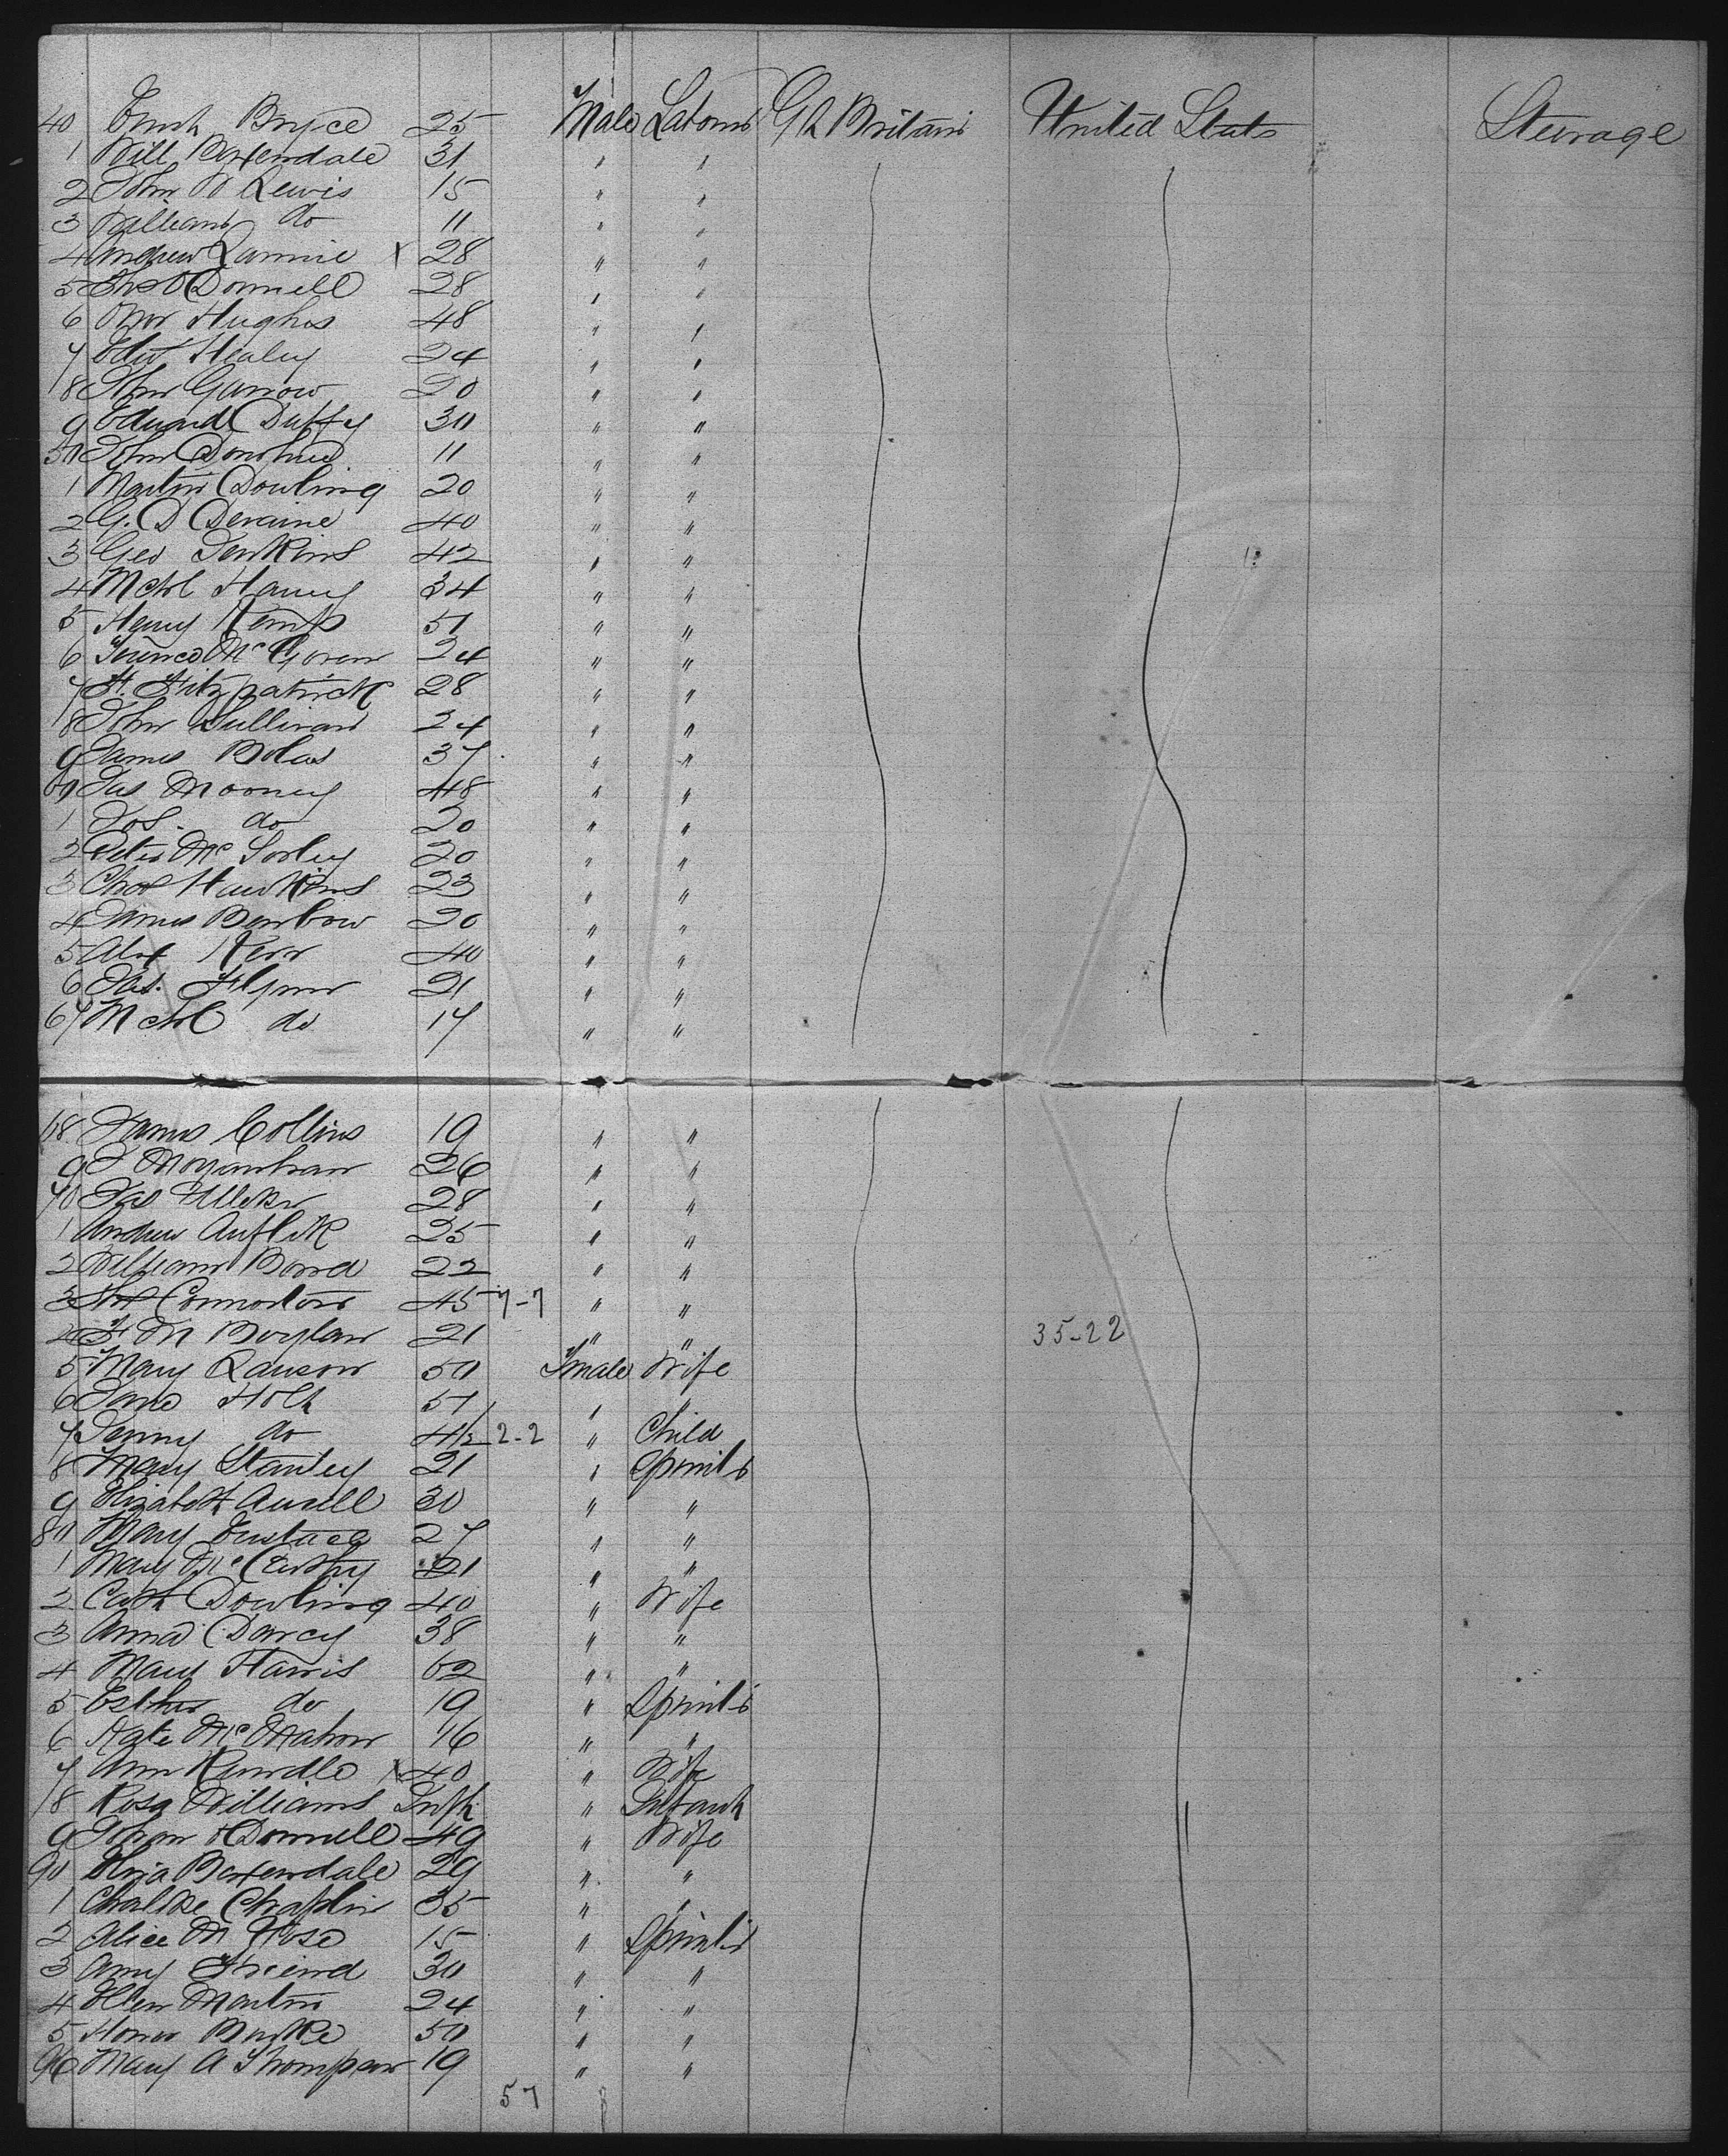 40 Bryce 25 Male Labour Gt Britain United Stats Steerage
1 Will Baxendale 31 " "
2 John W Lewis 15 " "
3 William do 11 " "
4 Andrew Lannie X 28 " "
5 Thos O'Donnell 28 " "
6 Hughes 48 " "
7 Edw Healey 24 " "
8 John Garrow 20 " "
9 Edward Duffy 30 " "
50 John Donohue 11 " "
1 Martin Dowling 20 " "
2 G. D Deraine 40 " "
3 Geo Jenkins 42 " "
4 Mchl Haney 34 " "
5 Henry Kemp 51 " "
6 McGovern 24 " "
7 H. Fitzpatrick 28 " "
8 John Sullivan 24 " "
9 James Bolas 37 " "
60 Jas Mooney 48 " "
1 Jos. do 20 " "
2 Peter McSorley 20 " "
3 Chas Hawkins 23 " "
4 James Benbow 20 " "
5 Alex Kerr 40 " "
6 Jas. Flynn 21 " "
67 Mchl do 17 " "
68 James Collins 19 " "
9 J Moynihan 26 " "
70 Jas 28 " "
1 Andrew 25 " "
2 William Bond 22 " "
3 45 7-7 " "
4 F M Boylan 21 " " 35-22
5 Mary Lawson 50 Female Wife
6 Jane Holt 51 " "
7 Jenny do 4 1/2 2-2 " Child
8 Mary Stanley 21 " Spinstr
9 Elizabeth Ausell 30 " "
80 Mary Eustace 27 " "
1 Mary McCarthy 21 " "
2 Cath Dowling 40 " Wife
3 Anna Darcy 38 " "
4 Mary Harris 62 " "
5 Esther do 19 " Spinstr
6 Kate McMahon 16 " "
7 Ann Rundle X 40 " Wife
8 Rosa Williams Inft " Infant
9 Johan O'Donnell 49 " Wife
90 Eliza Baxendale 29 " "
1 Chaplin 35 " "
2 Alice M 15 " Spinstr
3 Amy Friend 30 " "
4 Ellen Martin 24 " "
5 Honor Burke 50 " "
96 Mary A Thompson 19 " "
57